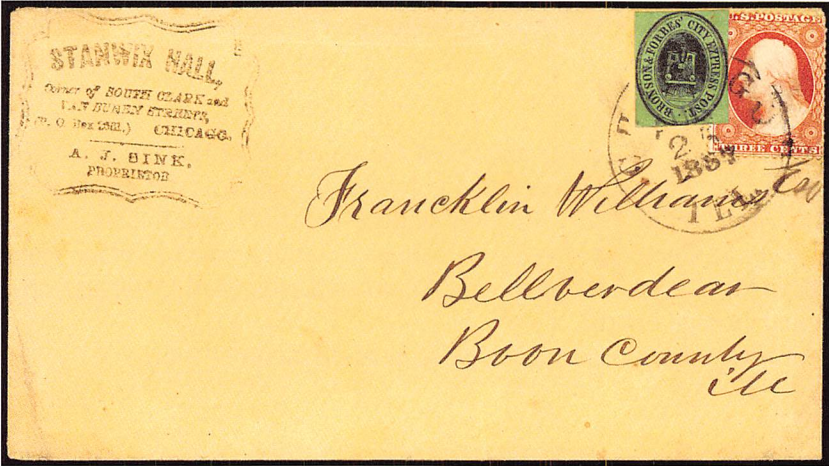 STANWIX HALL,
Corner of SOUTH CLARK and
VAN BUREN STREETS,
(P. O. Box) CHICAGO.
A. J. SINK,
PROPRIETOR
BRONSON & FORBES' CITY EXPRESS POST.
U.S. POSTAGE
THREE CENTS
AUG
ILL
Francklin Williams
Bellverdear
Boon County
ill